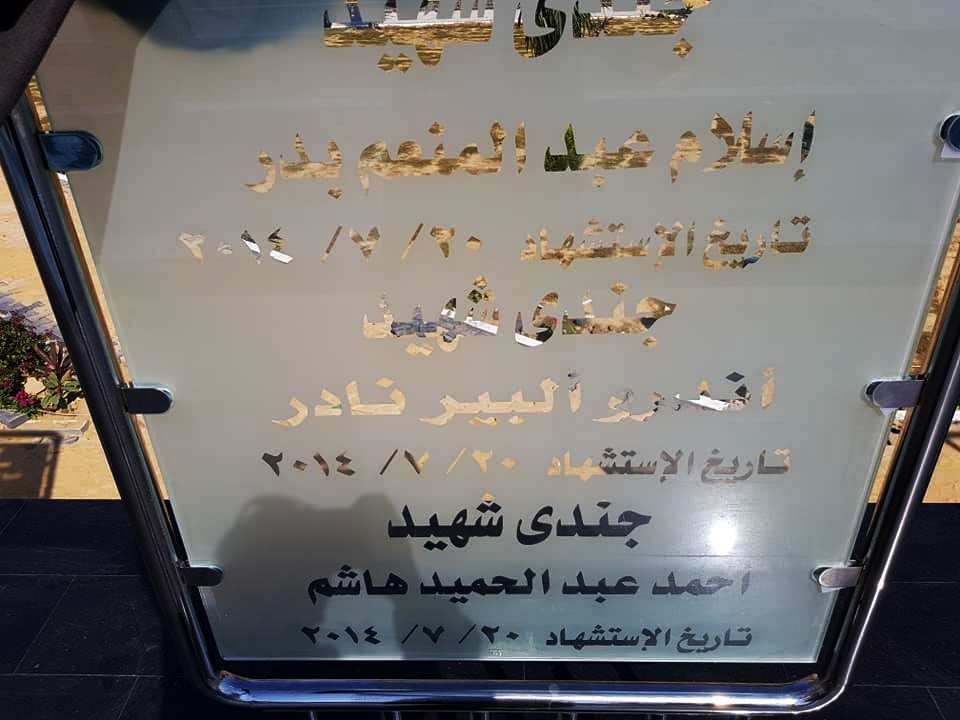 جندى شهيد
إسلام عبد المنعم بدر
تاريخ الإستشهاد ٢٠/ ٧/ ٢٠١٤
جندى شهيد
أندرو ألبير نادر
تاريخ الإستشهاد ٢٠/ ٧/ ٢٠١٤
جندى شهيد
احمد عبد الحميد هاشم
تاريخ الإستشهاد ٢٠/ ٧/ ٢٠١٤